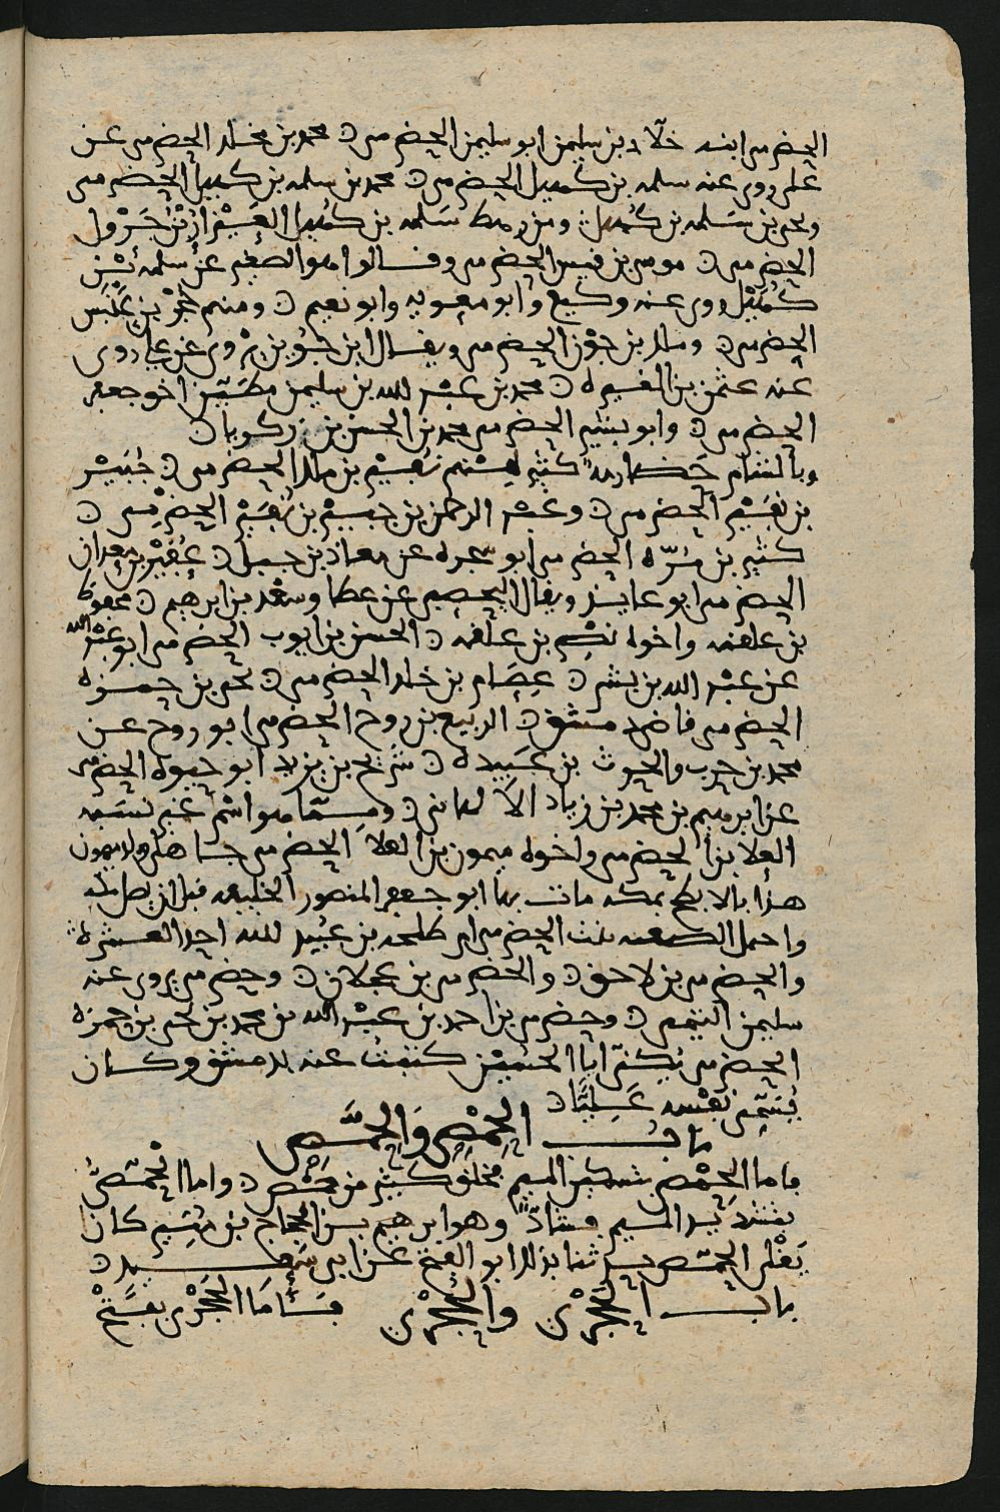 الحضرمي ابنه خلاد بن سليمن ابو سليمن الحضرمي محمد بن مخلد الحضرمي عن
علي روى عنه سلمه بن كهيل الحضرمي محمد بن سلمه بن كهيل الحضرمي
ويحيى بن سلمه بن كهيل ومن رهط سلمه بن كهيل العيزار بن جرول
الحضرمي موسى بن قيس الحضرمي وقالوا هو الصغير عن سلمه بن
كهيل روى عنه وكيع وابو معويه وابو نعيم ومنهم حجر بن عنبس
الحضرمي ومالك بن جون الحضرمي ويقال ابن جوين يروي عن علي روى
عنه عثمن بن المغيره محمد بن عبد الله بن سليمن مطين اخو جعفر
الحضرمي وابو بشير الحضرمي محمد بن الحسن بن زكريا
وبالشام حضارمه كثير منهم نفير بن مالك الحضرمي جبير
بن نفير الحضرمي وعبد الرحمن بن جبير بن نفير الحضرمي
كثير بن مره الحضرمي ابو شجره عن معاذ بن جبل عفير بن معدان
الحضرمي ابو عايذ ويقال اليحصبي عن عطا وسعد بن ابرهيم محفوظ
بن علقمه واخوه نصر بن علقمه الحسن بن ايوب الحضرمي ابو عبد الله
عن عبد الله بن بسر عصام بن خلد الحضرمي يحيى بن حمزه
الحضرمي قاضي دمشق الربيع بن روح الحضرمي ابو روح عن
محمد بن حرب والحرث بن عبيده شريح بن يزيد ابو حيوه الحضرمي
عن ابرهيم بن محمد بن زياد الالهاني ومما هو اسم غير نسبه
العلا بن الحضرمي واخوه ميمون بن العلا الحضرمي جاهلي وله ميمون
هذا بالابطح بمكه مات بها ابو جعفر المنصور الخليفه قبل ان يصل مكه
واحمل الصعبه بنت الحضرمي ام طلحه بن عبيد الله احد العشره
والحضرمي بن لاحق والحضرمي بن عجلان وحضرمي يروي عنه
سليمن التيمي وحضرمي بن احمد بن عبد الله بن محمد بن يحيى بن حمزه
الحضرمي يكنى ابا الحسين كتبت عنه بدمشق وكان
يسمي نفسه عليا
باب الحمصي والحمصي
فاما الحمصي بتسكين الميم فخلق كثير من حمص واما الحمصي
بتشديد الميم فشاذ وهو ابرهيم بن الحجاج بن منير كان
يغلي الحمص ثنا بذلك ابو الفتح عن ابي سعيد
باب الحجري والحجري فاما الحجري بفتح